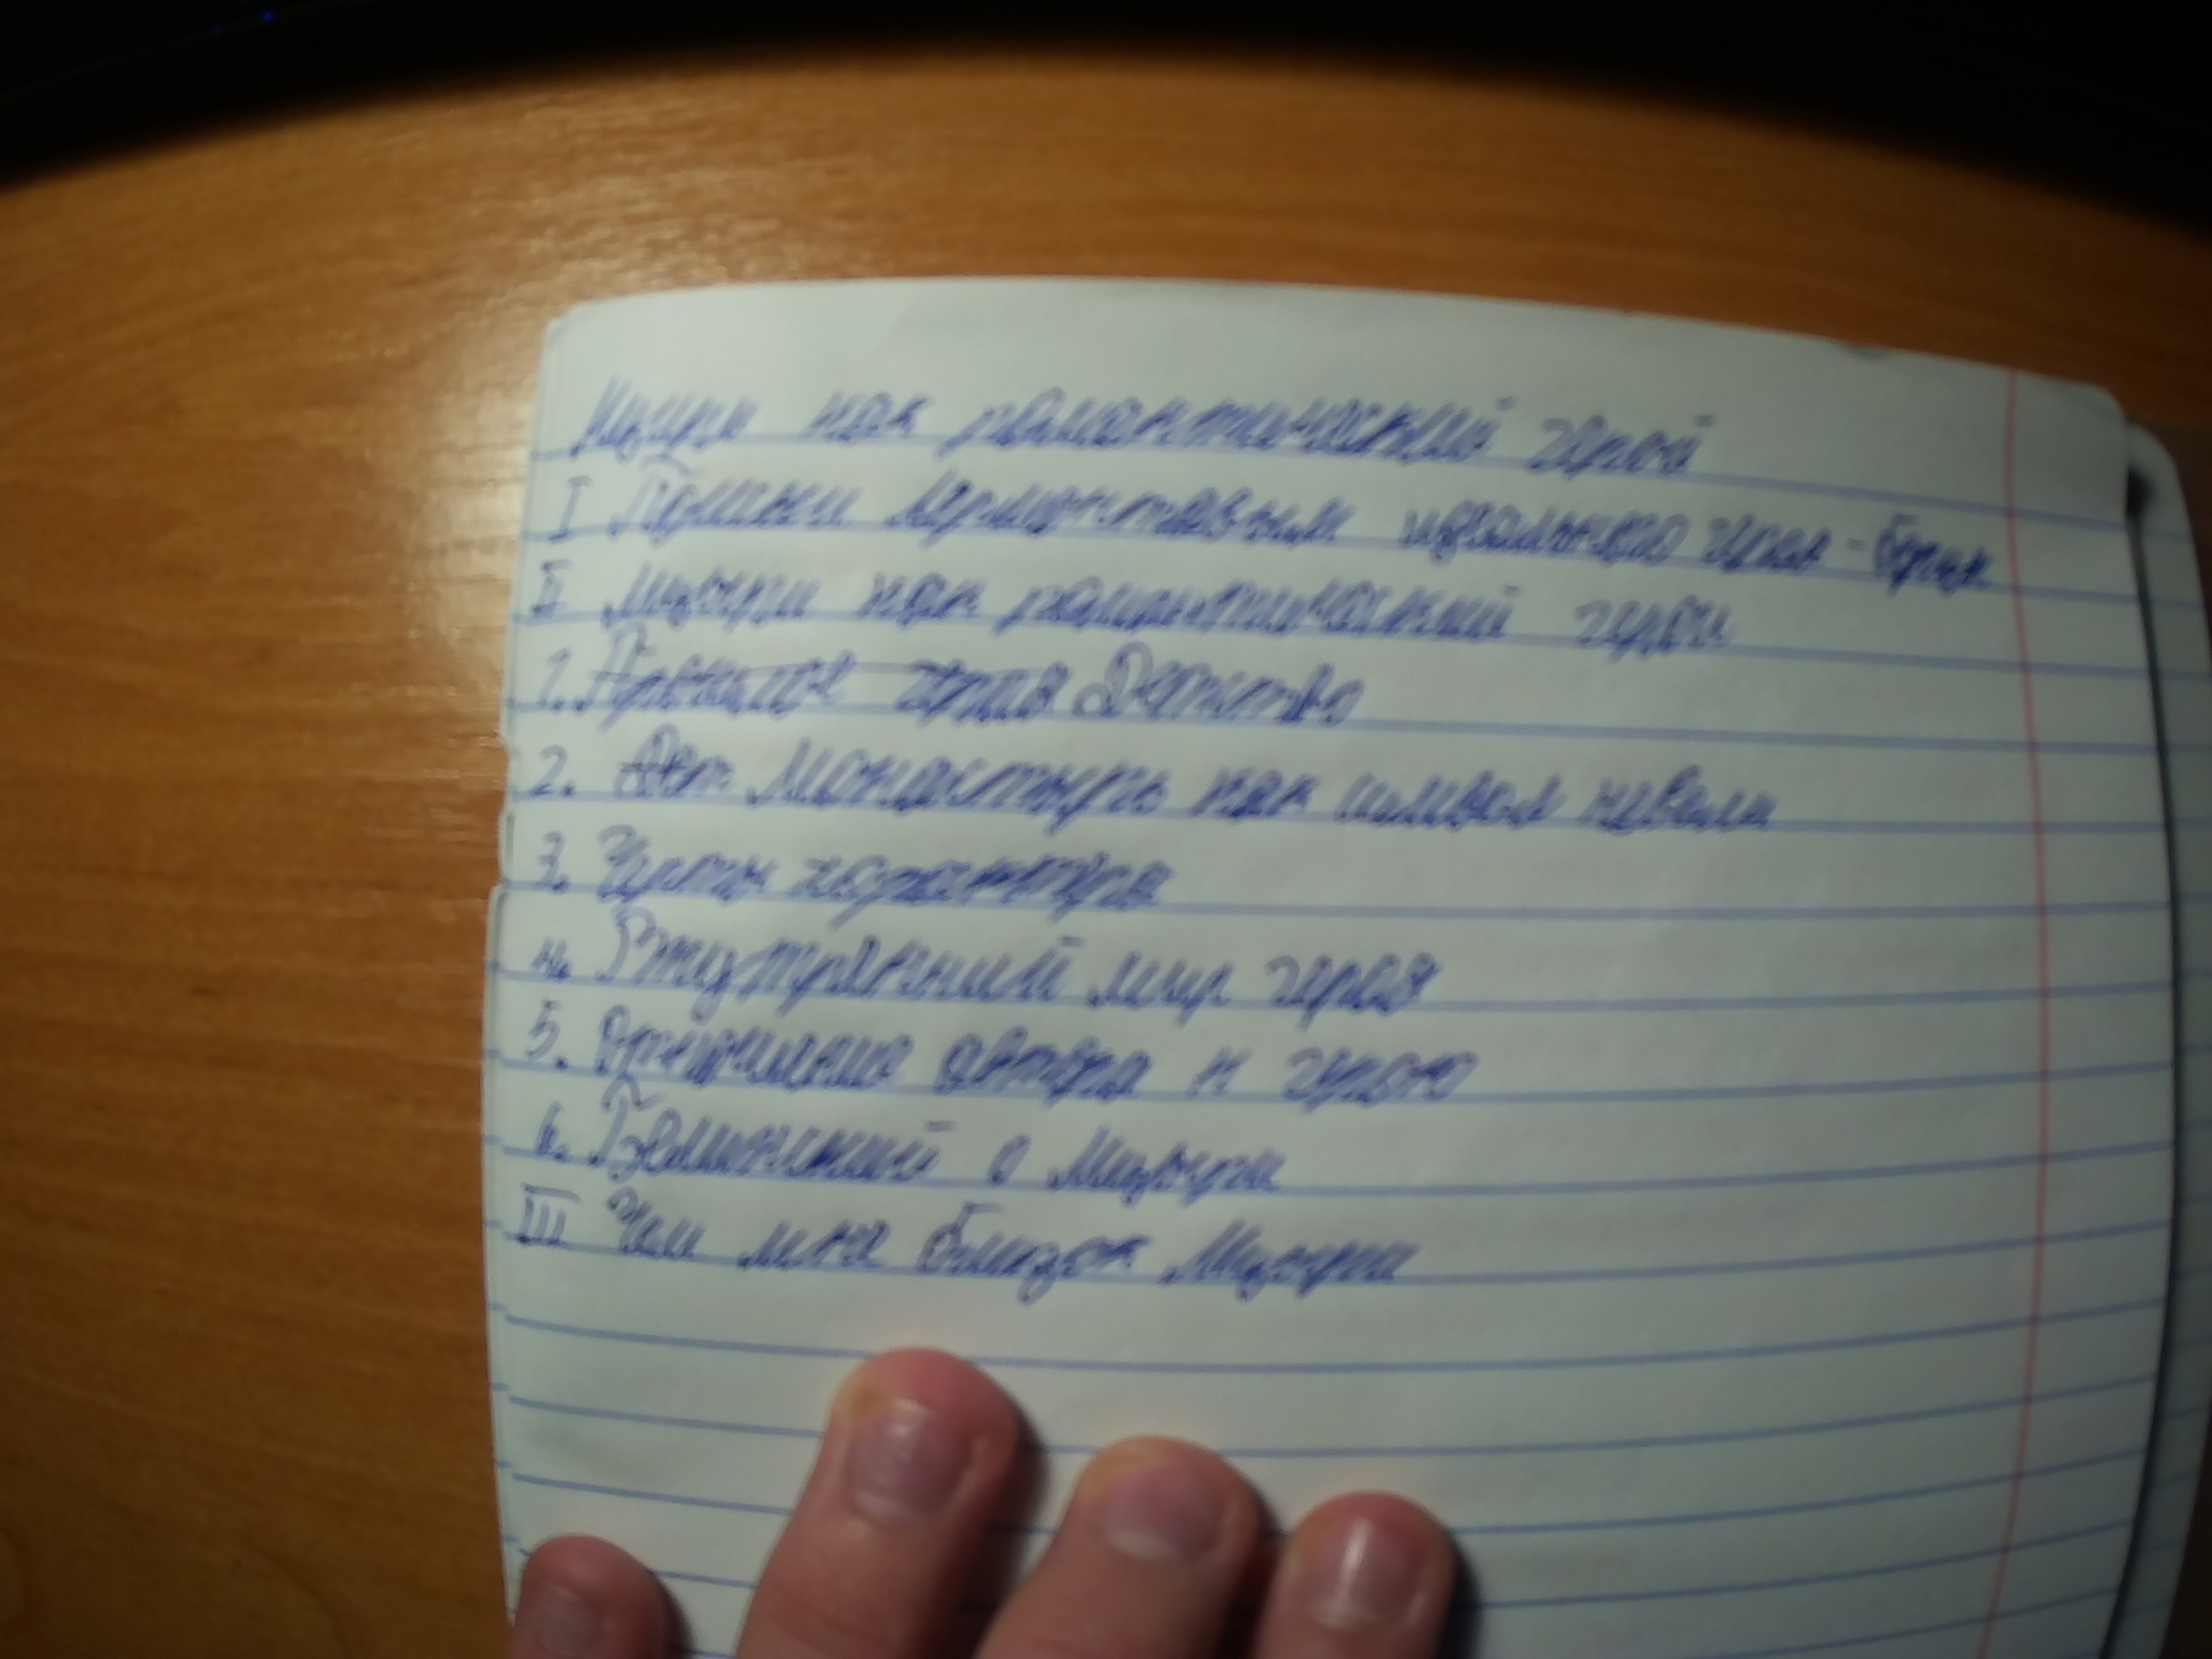 Мцыри как романтический герой
I Поиски Лермонтовым идеального героя - борца
II Мцыри как романтический герой
1. Прошлое героя Детство
2. Дет Монастырь как символ неволи
3. Черты характера
4. Внутренний мир героя
5. Отношение автора к герою
6. Белинский о Мцыри
III Чем мне близок Мцыри